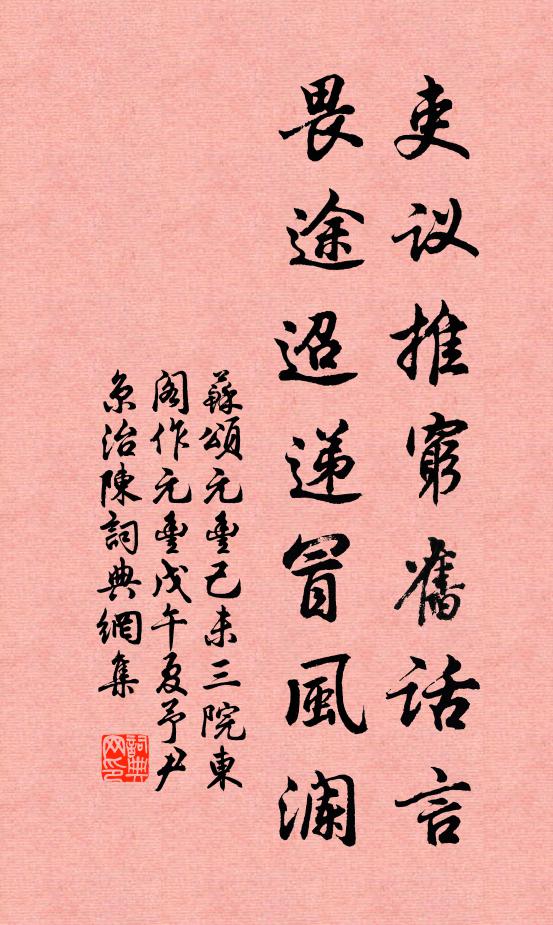 吏议推窮舊话言
畏途迢递冒風澜
蘇頌元豊己未三院東
閣作元豊戊午夏予尹
京治陳詞典網集
詞典网印